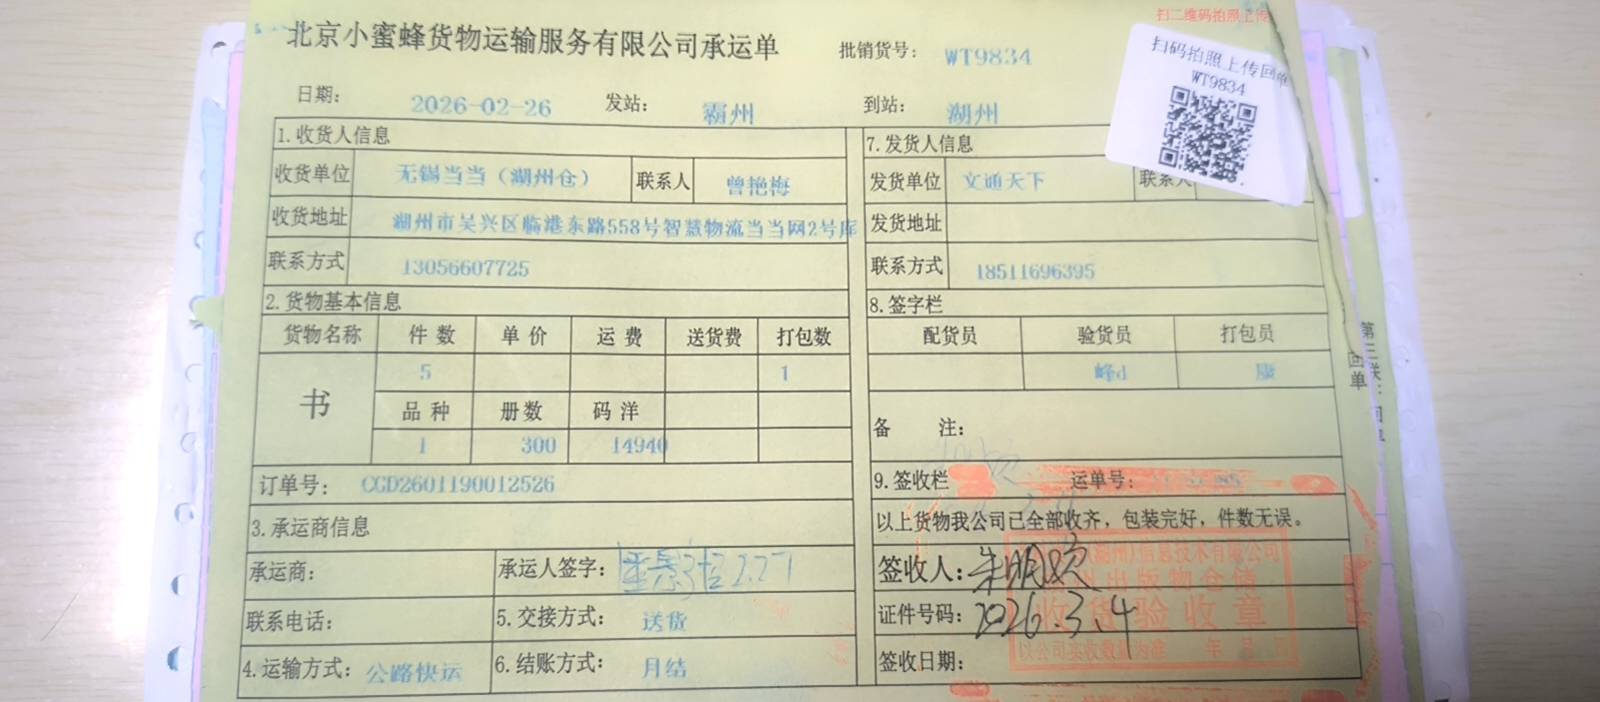 扫二维码拍照上传
北京小蜜蜂货物运输服务有限公司承运单
批销货号: WT9834
扫码拍照上传回单
WT9834
日期: 2026-02-26 发站: 霸州 到站: 湖州
1.收货人信息 7.发货人信息
收货单位 无锡当当（湖州仓） 联系人 曾艳梅 发货单位 文通天下 联系人
收货地址 湖州市吴兴区临港东路558号智慧物流当当网2号库 发货地址
联系方式 13056607725 联系方式 18511696395
2.货物基本信息 8.签字栏
货物名称 件数 单价 运费 送货费 打包数 配货员 验货员 打包员
书 5 1 峰d 康
品种 册数 码洋
1 300 14940
备 注:
订单号: CGD2601190012526
9.签收栏 运单号:
3.承运商信息
以上货物我公司已全部收齐，包装完好，件数无误。
承运商: 承运人签字: 2.27
签收人: 朱明
联系电话: 5.交接方式: 送货
证件号码: 2026.3.4
4.运输方式: 公路快运 6.结账方式: 月结
签收日期:
(湖州)信息技术有限公司
出版物仓储
收货验收章
以公司实收数量为准 年 月 日
第三联：回单
回单